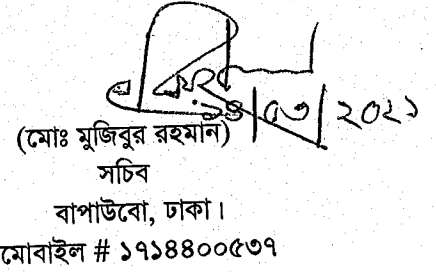 ১৪/০৩/২০২১
(মোঃ মুজিবুর রহমান)
সচিব
বাপাউবো, ঢাকা।
মোবাইল # ১৭১৪৪০০৫৩৭